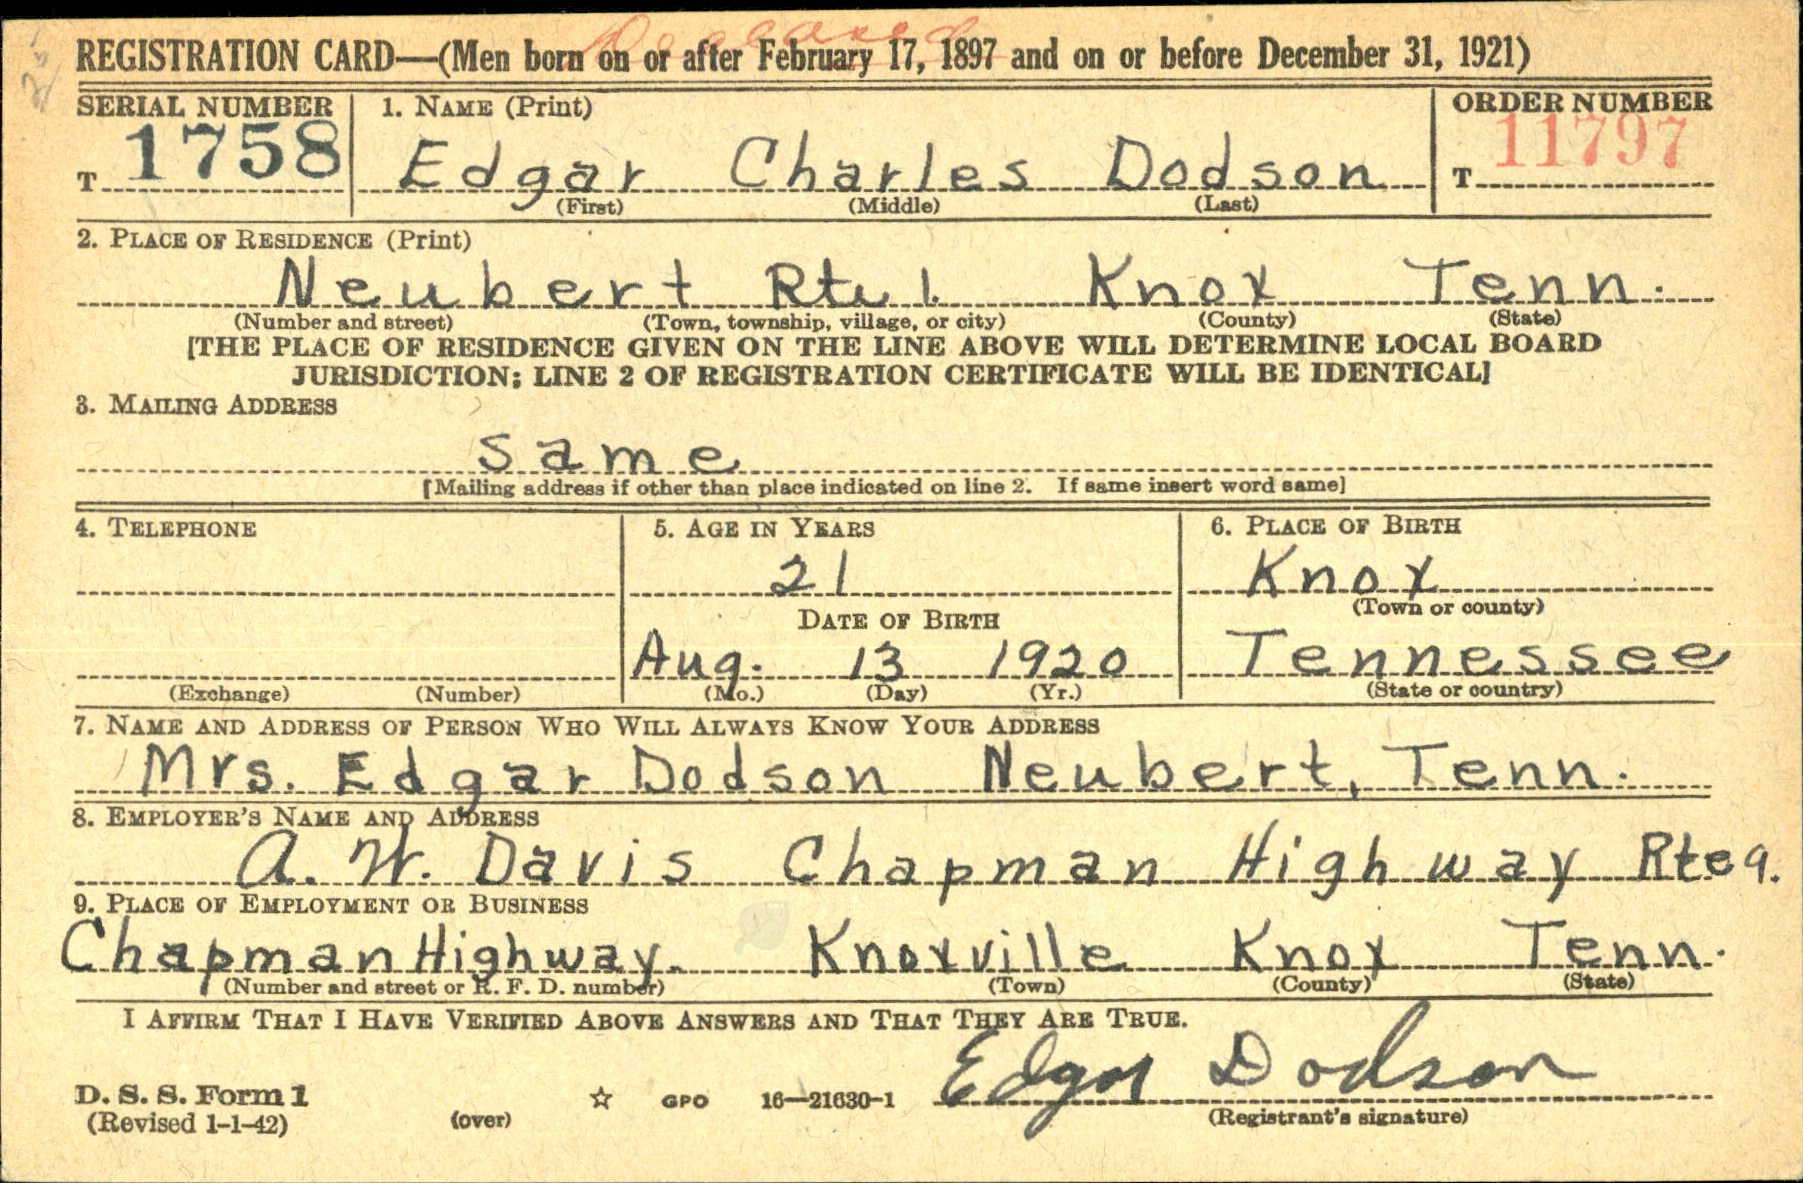 Deceased
REGISTRATION CARD—(Men born on or after February 17, 1897 and on or before December 31, 1921)
SERIAL NUMBER 1. NAME (Print) ORDER NUMBER
T 1758 Edgar Charles Dodson T 11797
(First) (Middle) (Last)
2. PLACE OF RESIDENCE (Print)
Neubert Rte 1. Knox Tenn.
(Number and street) (Town, township, village, or city) (County) (State)
[THE PLACE OF RESIDENCE GIVEN ON THE LINE ABOVE WILL DETERMINE LOCAL BOARD
JURISDICTION; LINE 2 OF REGISTRATION CERTIFICATE WILL BE IDENTICAL]
3. MAILING ADDRESS
same
[Mailing address if other than place indicated on line 2. If same insert word same]
4. TELEPHONE 5. AGE IN YEARS 6. PLACE OF BIRTH
21 Knox
DATE OF BIRTH (Town or county)
Aug. 13 1920 Tennessee
(Exchange) (Number) (Mo.) (Day) (Yr.) (State or country)
7. NAME AND ADDRESS OF PERSON WHO WILL ALWAYS KNOW YOUR ADDRESS
Mrs. Edgar Dodson Neubert, Tenn.
8. EMPLOYER'S NAME AND ADDRESS
A. W. Davis Chapman Highway Rte 9.
9. PLACE OF EMPLOYMENT OR BUSINESS
Chapman Highway. Knoxville Knox Tenn.
(Number and street or R. F. D. number) (Town) (County) (State)
I AFFIRM THAT I HAVE VERIFIED ABOVE ANSWERS AND THAT THEY ARE TRUE.
Edgar Dodson
D. S. S. Form 1
(Revised 1-1-42) (over) ☆ GPO 16—21630-1 (Registrant's signature)